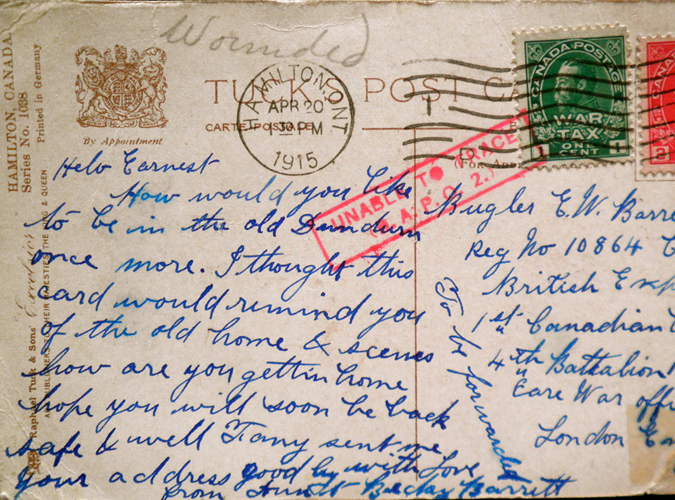 Wounded
HAMILTON, CANADA.
Series No. 1088
Printed in Germany
By Appointment
TUCK'S POST CARD
CARTE POSTALE
(FOR
HAMILTON, ONT
APR 20
30 PM
1915
CANADA POSTAGE
WAR
TAX
ONE
CENT
1
1
CANADA
2
UNABLE TO TRACE
A.P.O. 2.
Raphael Tuck & Sons'
THE KING & QUEEN
Helo Earnest
How would you like
to be in the old Dundurn
once more. I thought this
card would remind you
of the old home & scenes
how are you gettin home
hope you will soon be back
safe & well Fany sent me
your address good by with Love
from Aunt Becky Barrett
Bugler E.W. Barre
Reg No 10864
British Exp
1st Canadian
4th Battalion
Care War offi
London En
To be forwarded